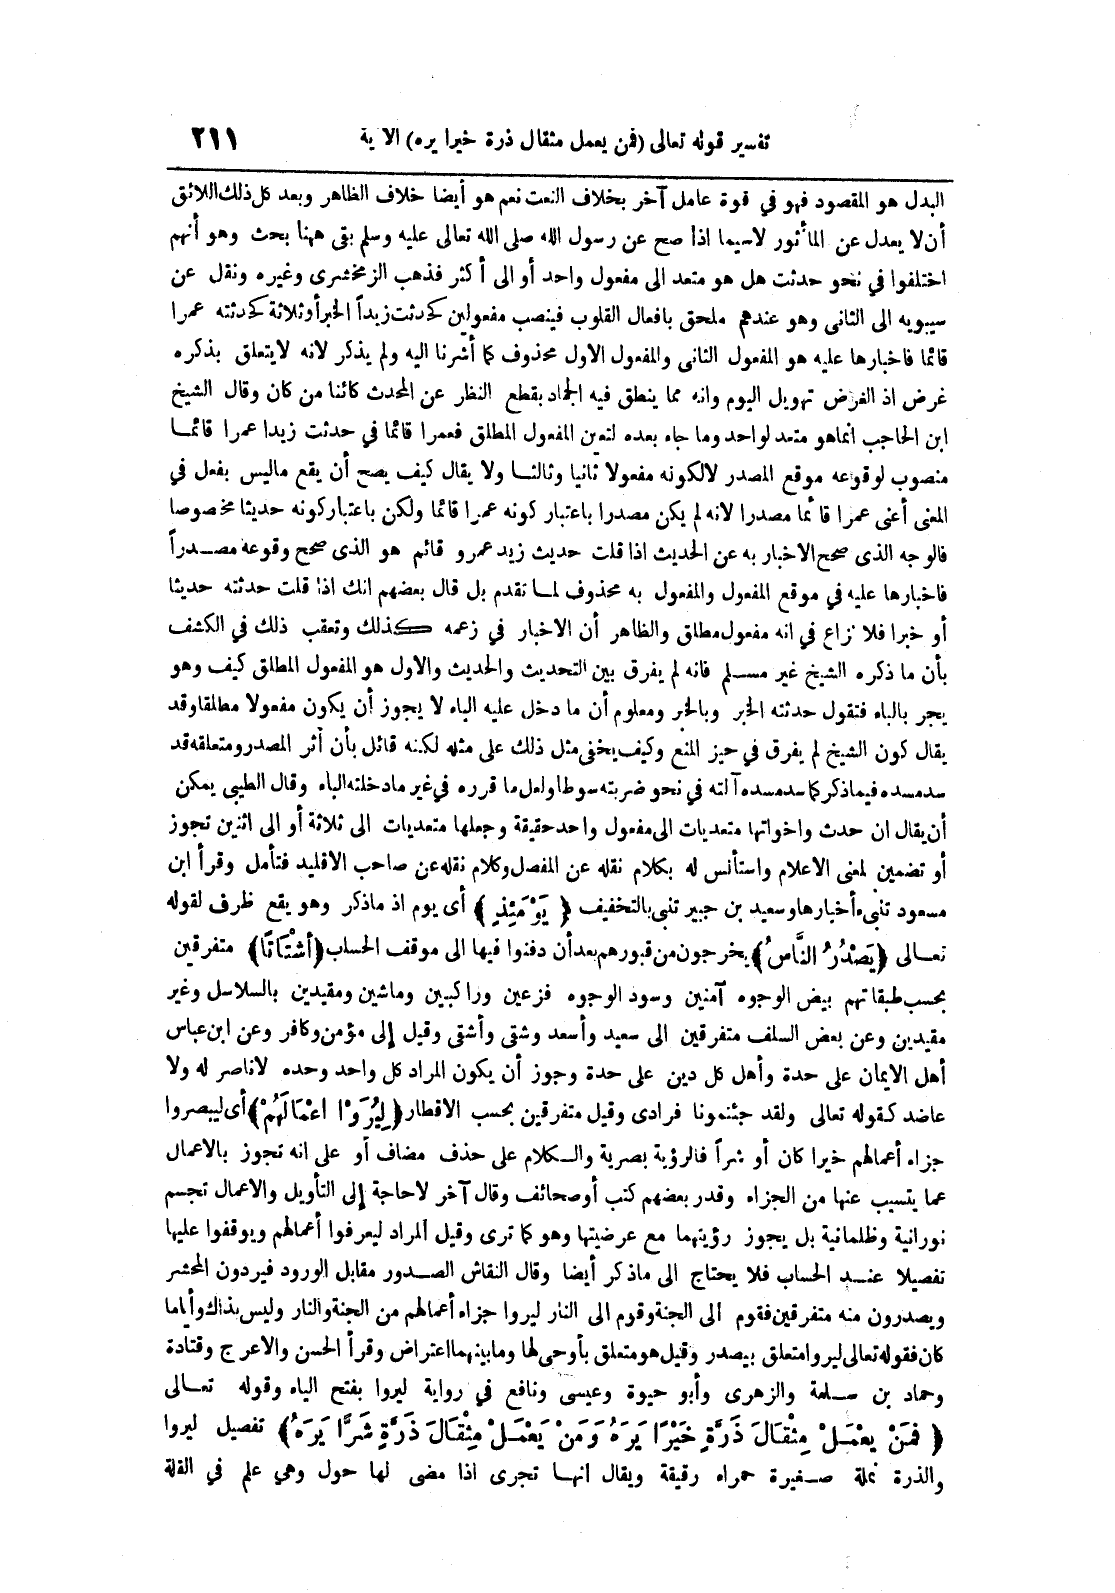 تفسير قوله تعالى (فمن يعمل مثقال ذرة خيرا يره) الاية ٢١١
البدل هو المقصود فهو في قوة عامل آخر بخلاف النعت نعم هو أيضا خلاف الظاهر وبعد كل ذلك اللائق
أن لا يعدل عن المأثور لاسيما اذا صح عن رسول الله صلى الله تعالى عليه وسلم بقى ههنا بحث وهو أنهم
اختلفوا في نحو حدثت هل هو متعد الى مفعول واحد أو الى أكثر فذهب الزمخشرى وغيره ونقل عن
سيبويه الى الثانى وهو عندهم ملحق بافعال القلوب فينصب مفعولين كحدثت زيداً الخبر أو ثلاثة كحدثته عمرا
قائما فاخبارها عليه هو المفعول الثانى والمفعول الاول محذوف كما أشرنا اليه ولم يذكر لانه لا يتعلق بذكره
غرض اذ الغرض تهويل اليوم وانه مما ينطق فيه الجماد بقطع النظر عن المحدث كائنا من كان وقال الشيخ
ابن الحاجب انما هو متعد لواحد وما جاء بعده لتعين المفعول المطلق فعمرا قائما في حدثت زيدا عمرا قائما
منصوب لوقوعه موقع المصدر لالكونه مفعولا ثانيا وثالثا ولا يقال كيف يصح أن يقع ماليس بفعل في
المعنى أعنى عمرا قائما مصدرا لانه لم يكن مصدرا باعتبار كونه عمرا قائما ولكن باعتبار كونه حديثا مخصوصا
فالوجه الذى صحح الاخبار به عن الحديث اذا قلت حديث زيد عمرو قائم هو الذى صحح وقوعه مصدراً
فاخبارها عليه في موقع المفعول والمفعول به محذوف لما تقدم بل قال بعضهم انك اذا قلت حدثته حديثا
أو خبرا فلا نزاع في انه مفعول مطلق والظاهر أن الاخبار في زعمه كذلك وتعقب ذلك في الكشف
بأن ما ذكره الشيخ غير مسلم فانه لم يفرق بين التحديث والحديث والاول هو المفعول المطلق كيف وهو
يجر بالباء فتقول حدثته الخبر وبالخبر ومعلوم أن ما دخل عليه الباء لا يجوز أن يكون مفعولا مطلقا وقد
يقال كون الشيخ لم يفرق في حيز المنع وكيف يخفى مثل ذلك على مثله لكنه قائل بأن أثر المصدر ومتعلقه قد
سد مسده فيما ذكر كما سد مسده آلته في نحو ضربته سوطا ولعل ما قرره في غير ما دخلته الباء وقال الطيبى يمكن
أن يقال ان حدث واخواتها متعديات الى مفعول واحد حقيقة وجعلها متعديات الى ثلاثة أو الى اثنين تجوز
أو تضمين لمعنى الاعلام واستأنس له بكلام نقله عن المفصل وكلام نقله عن صاحب الاقليد فتأمل وقرأ ابن
مسعود تنبىء أخبارها وسعيد بن جبير تنبى بالتخفيف ﴿ يَوْمَئِذٍ ﴾ أى يوم اذ ماذكر وهو يقع ظرف لقوله
تعالى ﴿يَصْدُرُ النَّاسُ﴾ يخرجون من قبورهم بعد أن دفنوا فيها الى موقف الحساب ﴿أَشْتَاتًا﴾ متفرقين
بحسب طبقاتهم بيض الوجوه آمنين وسود الوجوه فزعين وراكبين وماشين ومقيدين بالسلاسل وغير
مقيدين وعن بعض السلف متفرقين الى سعيد وأسعد وشقى وأشقى وقيل إلى مؤمن وكافر وعن ابن عباس
أهل الايمان على حدة وأهل كل دين على حدة وجوز أن يكون المراد كل واحد وحده لاناصر له ولا
عاضد كقوله تعالى ولقد جئتمونا فرادى وقيل متفرقين بحسب الاقطار ﴿لِيُرَوْا اعْمَالَهُمْ﴾ أى ليبصروا
جزاء أعمالهم خيرا كان أو شراً فالرؤية بصرية والكلام على حذف مضاف أو على انه تجوز بالاعمال
عما يتسبب عنها من الجزاء وقدر بعضهم كتب أو صحائف وقال آخر لاحاجة إلى التأويل والاعمال تجسم
نورانية وظلمانية بل يجوز رؤيتهما مع عرضيتها وهو كما ترى وقيل المراد ليعرفوا أعمالهم ويوقفوا عليها
تفصيلا عند الحساب فلا يحتاج الى ماذكر أيضا وقال النقاش الصدور مقابل الورود فيردون المحشر
ويصدرون منه متفرقين فقوم الى الجنة وقوم الى النار ليروا جزاء أعمالهم من الجنة والنار وليس بذاك وأياما
كان فقوله تعالى ليروا متعلق بيصدر وقيل هو متعلق بأوحى لها وما بينهما اعتراض وقرأ الحسن والاعرج وقتادة
وحماد بن سلمة والزهرى وأبو حيوة وعيسى ونافع في رواية ليروا بفتح الياء وقوله تعالى
﴿ فَمَنْ يَعْمَلْ مِثْقَالَ ذَرَّةٍ خَيْرًا يَرَهُ وَمَنْ يَعْمَلْ مِثْقَالَ ذَرَّةٍ شَرًّا يَرَهُ ﴾ تفصيل ليروا
والذرة نملة صغيرة حمراء رقيقة ويقال انها تجرى اذا مضى لها حول وهي علم في القلة